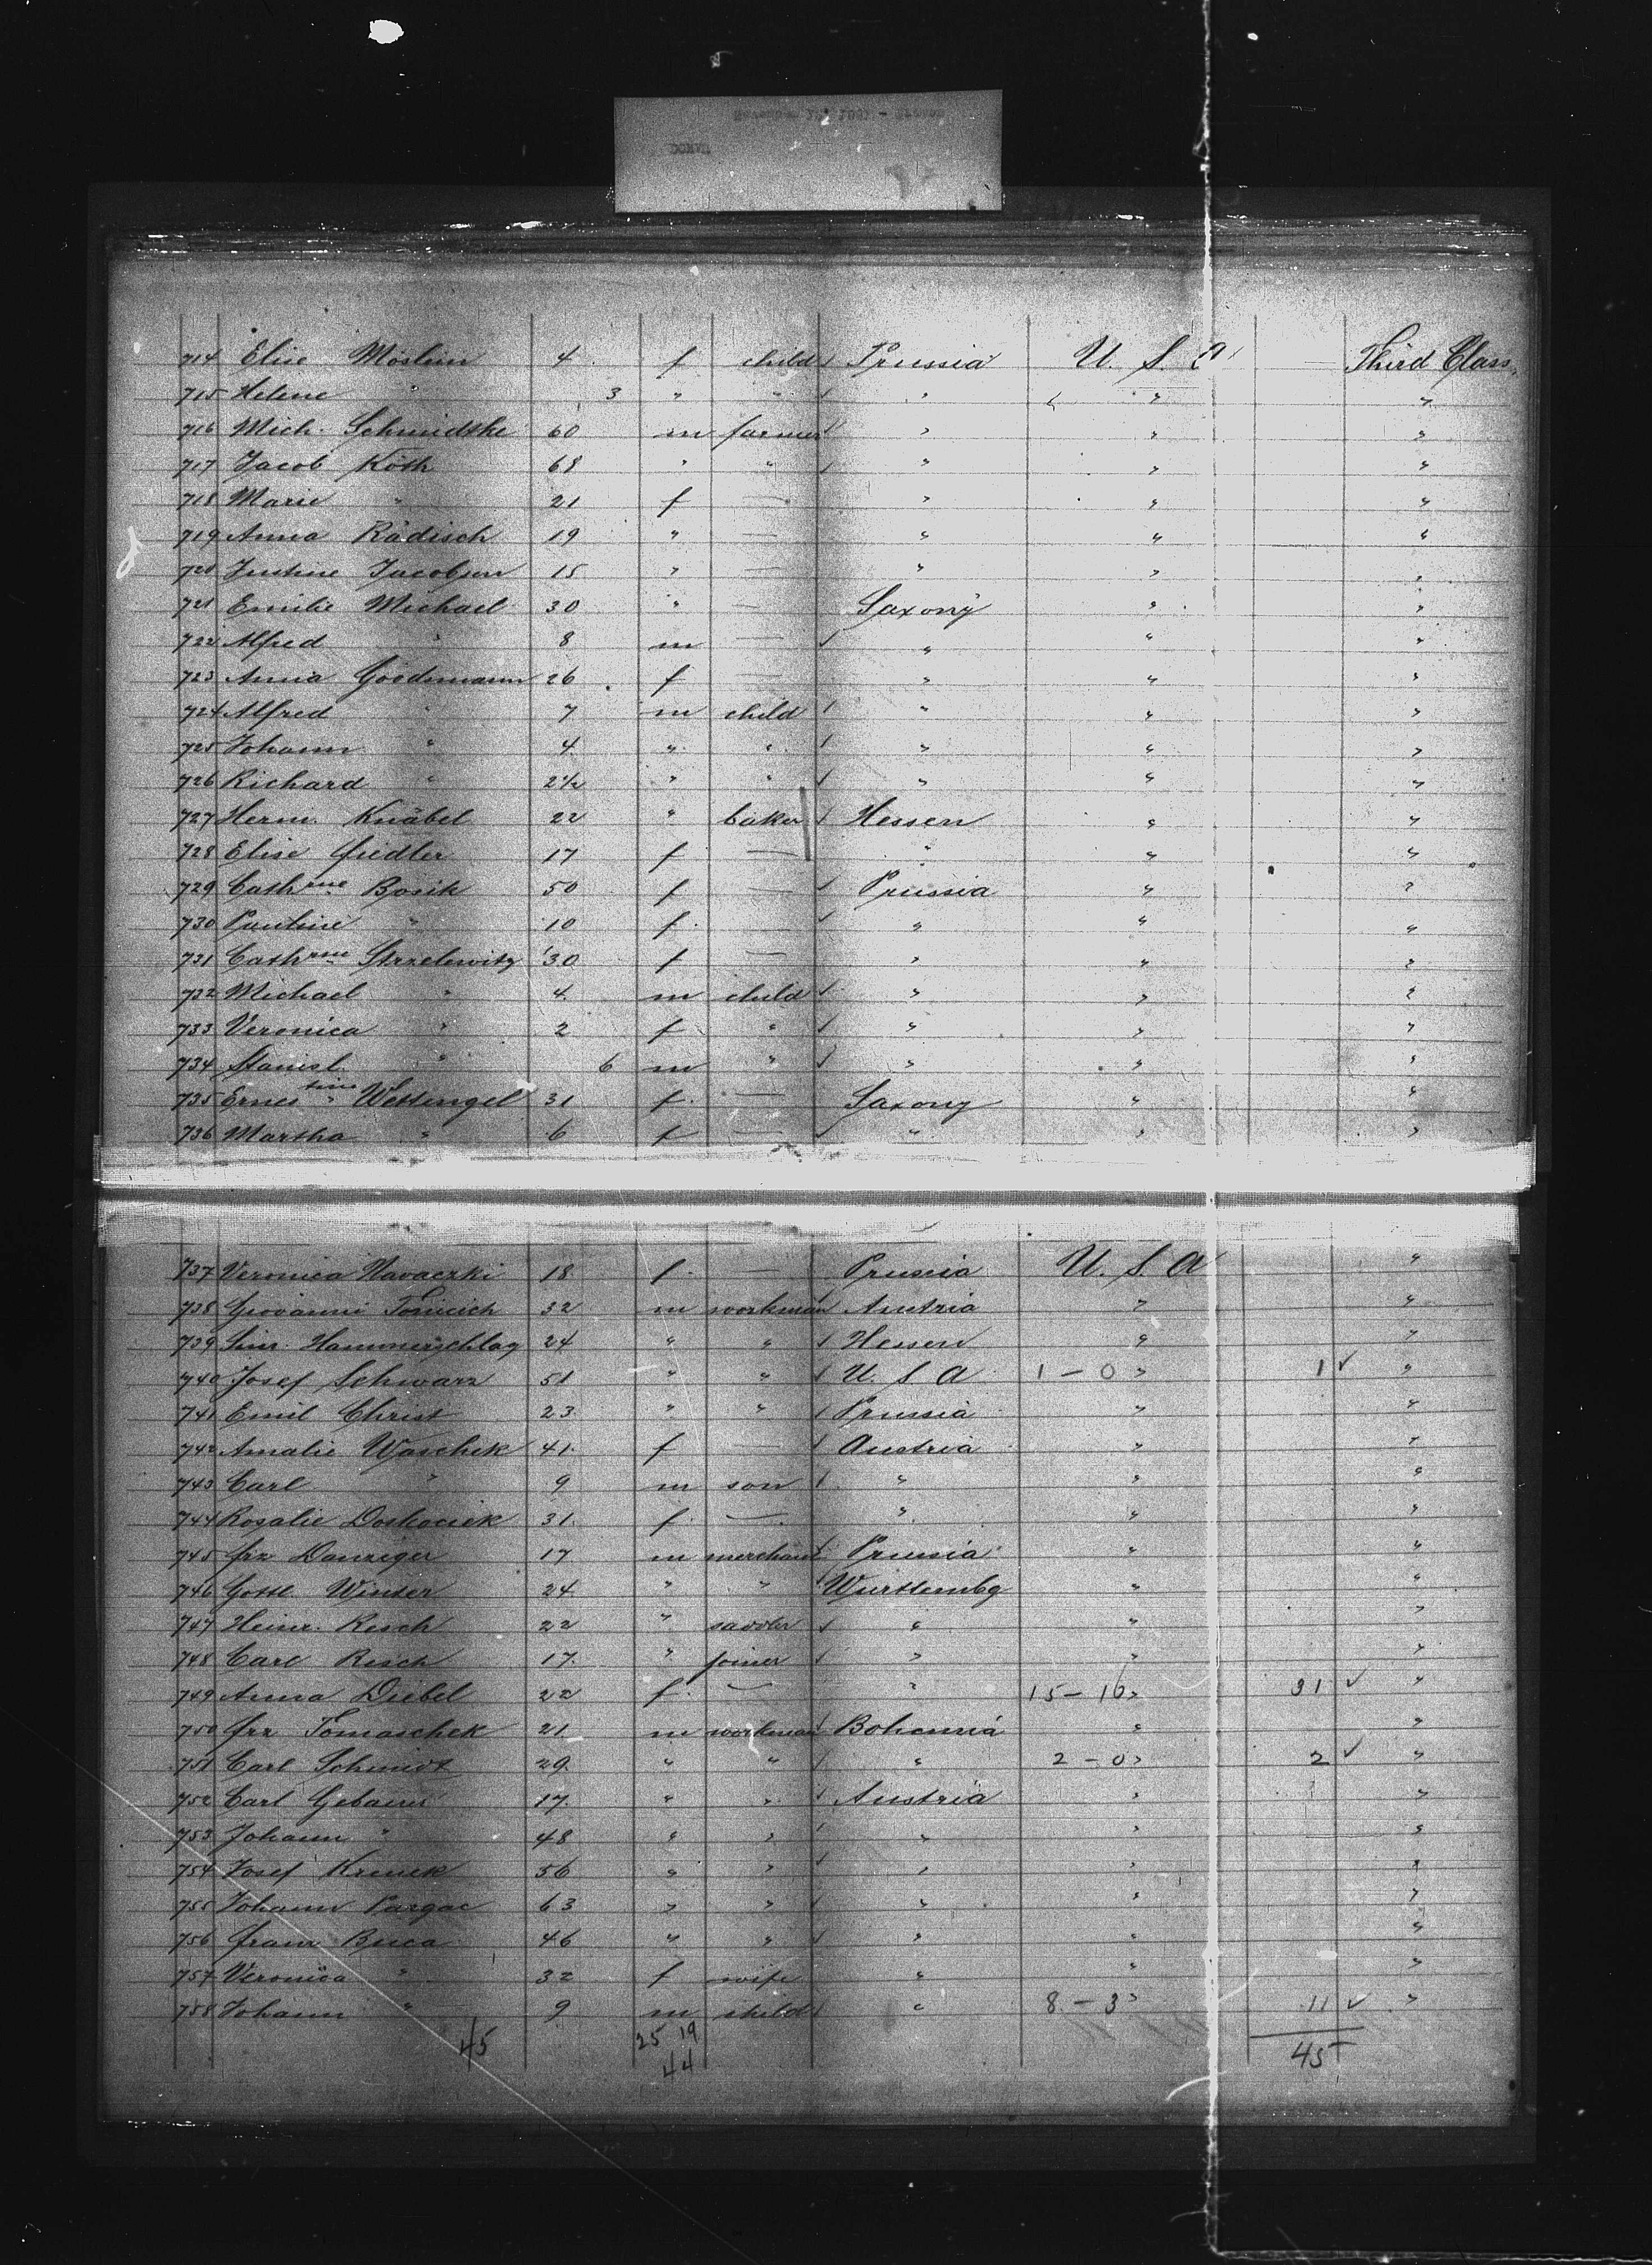 714 Elise Möslein 4 f child Prussia U. S. A Third Class
715 Helene " 3 " " " " "
716 Mich. Schmidtke 60 m farmer " " "
717 Jacob Köth 68 " " " " "
718 Marie " 21 f — " " "
719 Anna Rädisch 19 " — " " "
720 Justine Jacobsen 15 " — " " "
721 Emilie Michael 30 " — Saxony " "
722 Alfred " 8 m — " " "
723 Anna Goedemann 26 f — " " "
724 Alfred " 7 m child " " "
725 Johann " 4 " " " " "
726 Richard " 2½ " " " " "
727 Herm. Knäbel 22 " baker Hessen " "
728 Elise Fiedler 17 f — " " "
729 Cathrine Bosik 50 f — Prussia " "
730 Pauline " 10 f — " " "
731 Cathrine Strzelewitz 30 f — " " "
732 Michael " 4 m child " " "
733 Veronica " 2 f " " " "
734 Stanisl. " 6 m " " " "
735 Ernestine Wettengel 31 f — Saxony " "
736 Martha " 6 f — " " "
737 Veronica Navaczki 18 f — Prussia U. S. A "
738 Giovanni Tomicich 32 m workman Austria " "
739 Hammerschlag 24 " " Hessen " "
740 Josef Schwarz 51 " " U. S. A 1 – 0 " 1 ✓ "
741 Emil Christ 23 " " Prussia " "
742 Amalie Waschek 41 f — Austria " "
743 Carl " 9 m son " " "
744 Rosalie Doskociek 31 f — " " "
745 Frz Danziger 17 m merchant Prussia " "
746 Gottl. Winter 24 " " Württembg " "
747 Heinr. Resch 22 " saddler " " "
748 Carl Resch 17 " joiner " " "
749 Anna Diebel 22 f — " 15 – 16 " 31 ✓ "
750 Frz Tomaschek 21 m workman Bohemia " "
751 Carl Schmidt 29 " " " 2 – 0 " 2 ✓ "
752 Carl Gebauer 17 " " Austria " "
753 Johann " 48 " " " " "
754 Josef Krenek 56 " " " " "
755 Johann Pargac 63 " " " " "
756 Franz Buca 46 " " " " "
757 Veronica " 32 f wife " " "
758 Johann " 9 m child " 8 – 3 " 11 ✓ "
45 25 19 45
44